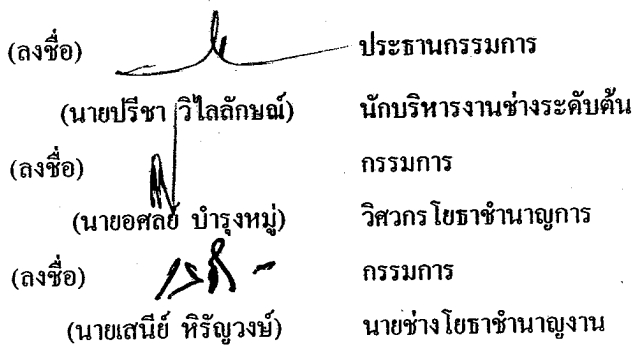 (ลงชื่อ) ประธานกรรมการ
(นายปรีชา วิไลลักษณ์) นักบริหารงานช่างระดับต้น
(ลงชื่อ) กรรมการ
(นายอศลย์ บำรุงหมู่) วิศวกรโยธาชำนาญการ
(ลงชื่อ) กรรมการ
(นายเสนีย์ หิรัญวงษ์) นายช่างโยธาชำนาญงาน